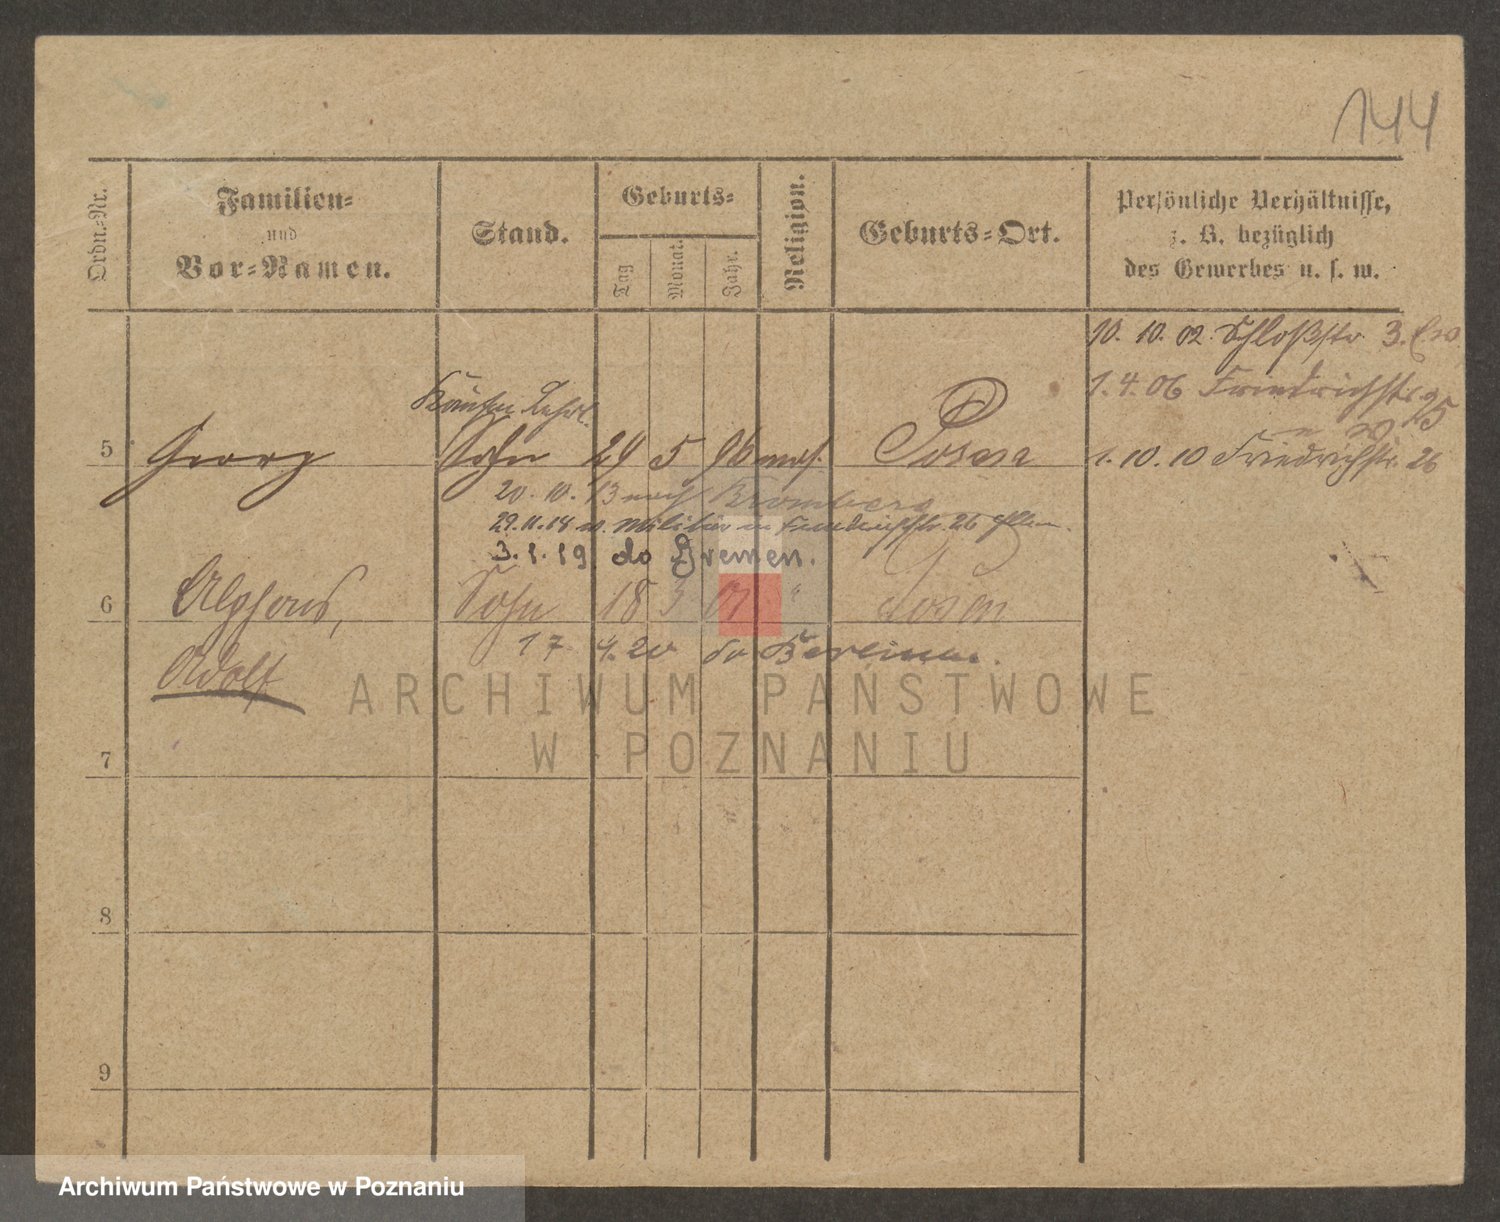 144
Ordn.-Nr.
Familien-
und
Vor-Namen.
Stand.
Geburts-
Tag
Monat.
Jahr.
Religion.
Geburts-Ort.
Persönliche Verhältnisse,
z. B. bezüglich
des Gewerbes u. s. w.
10. 10. 02. Schloßstr. 3.
1. 4. 06 Friedrichstr. 25
1. 10. 10 Friedrichstr. 26
5 Georg Sohn 24 5 96 mos. Posen
20. 10. 13 nach Bromberg
29. 11. 18 v. Militär Friedrichstr. 26
3. 1. 19. do Bremen.
6 Alphons, Sohn 18 3 01 " Posen
Adolf
17. 4. 20 do Berlin
7
8
9
ARCHIWUM PAŃSTWOWE
W POZNANIU
Archiwum Państwowe w Poznaniu